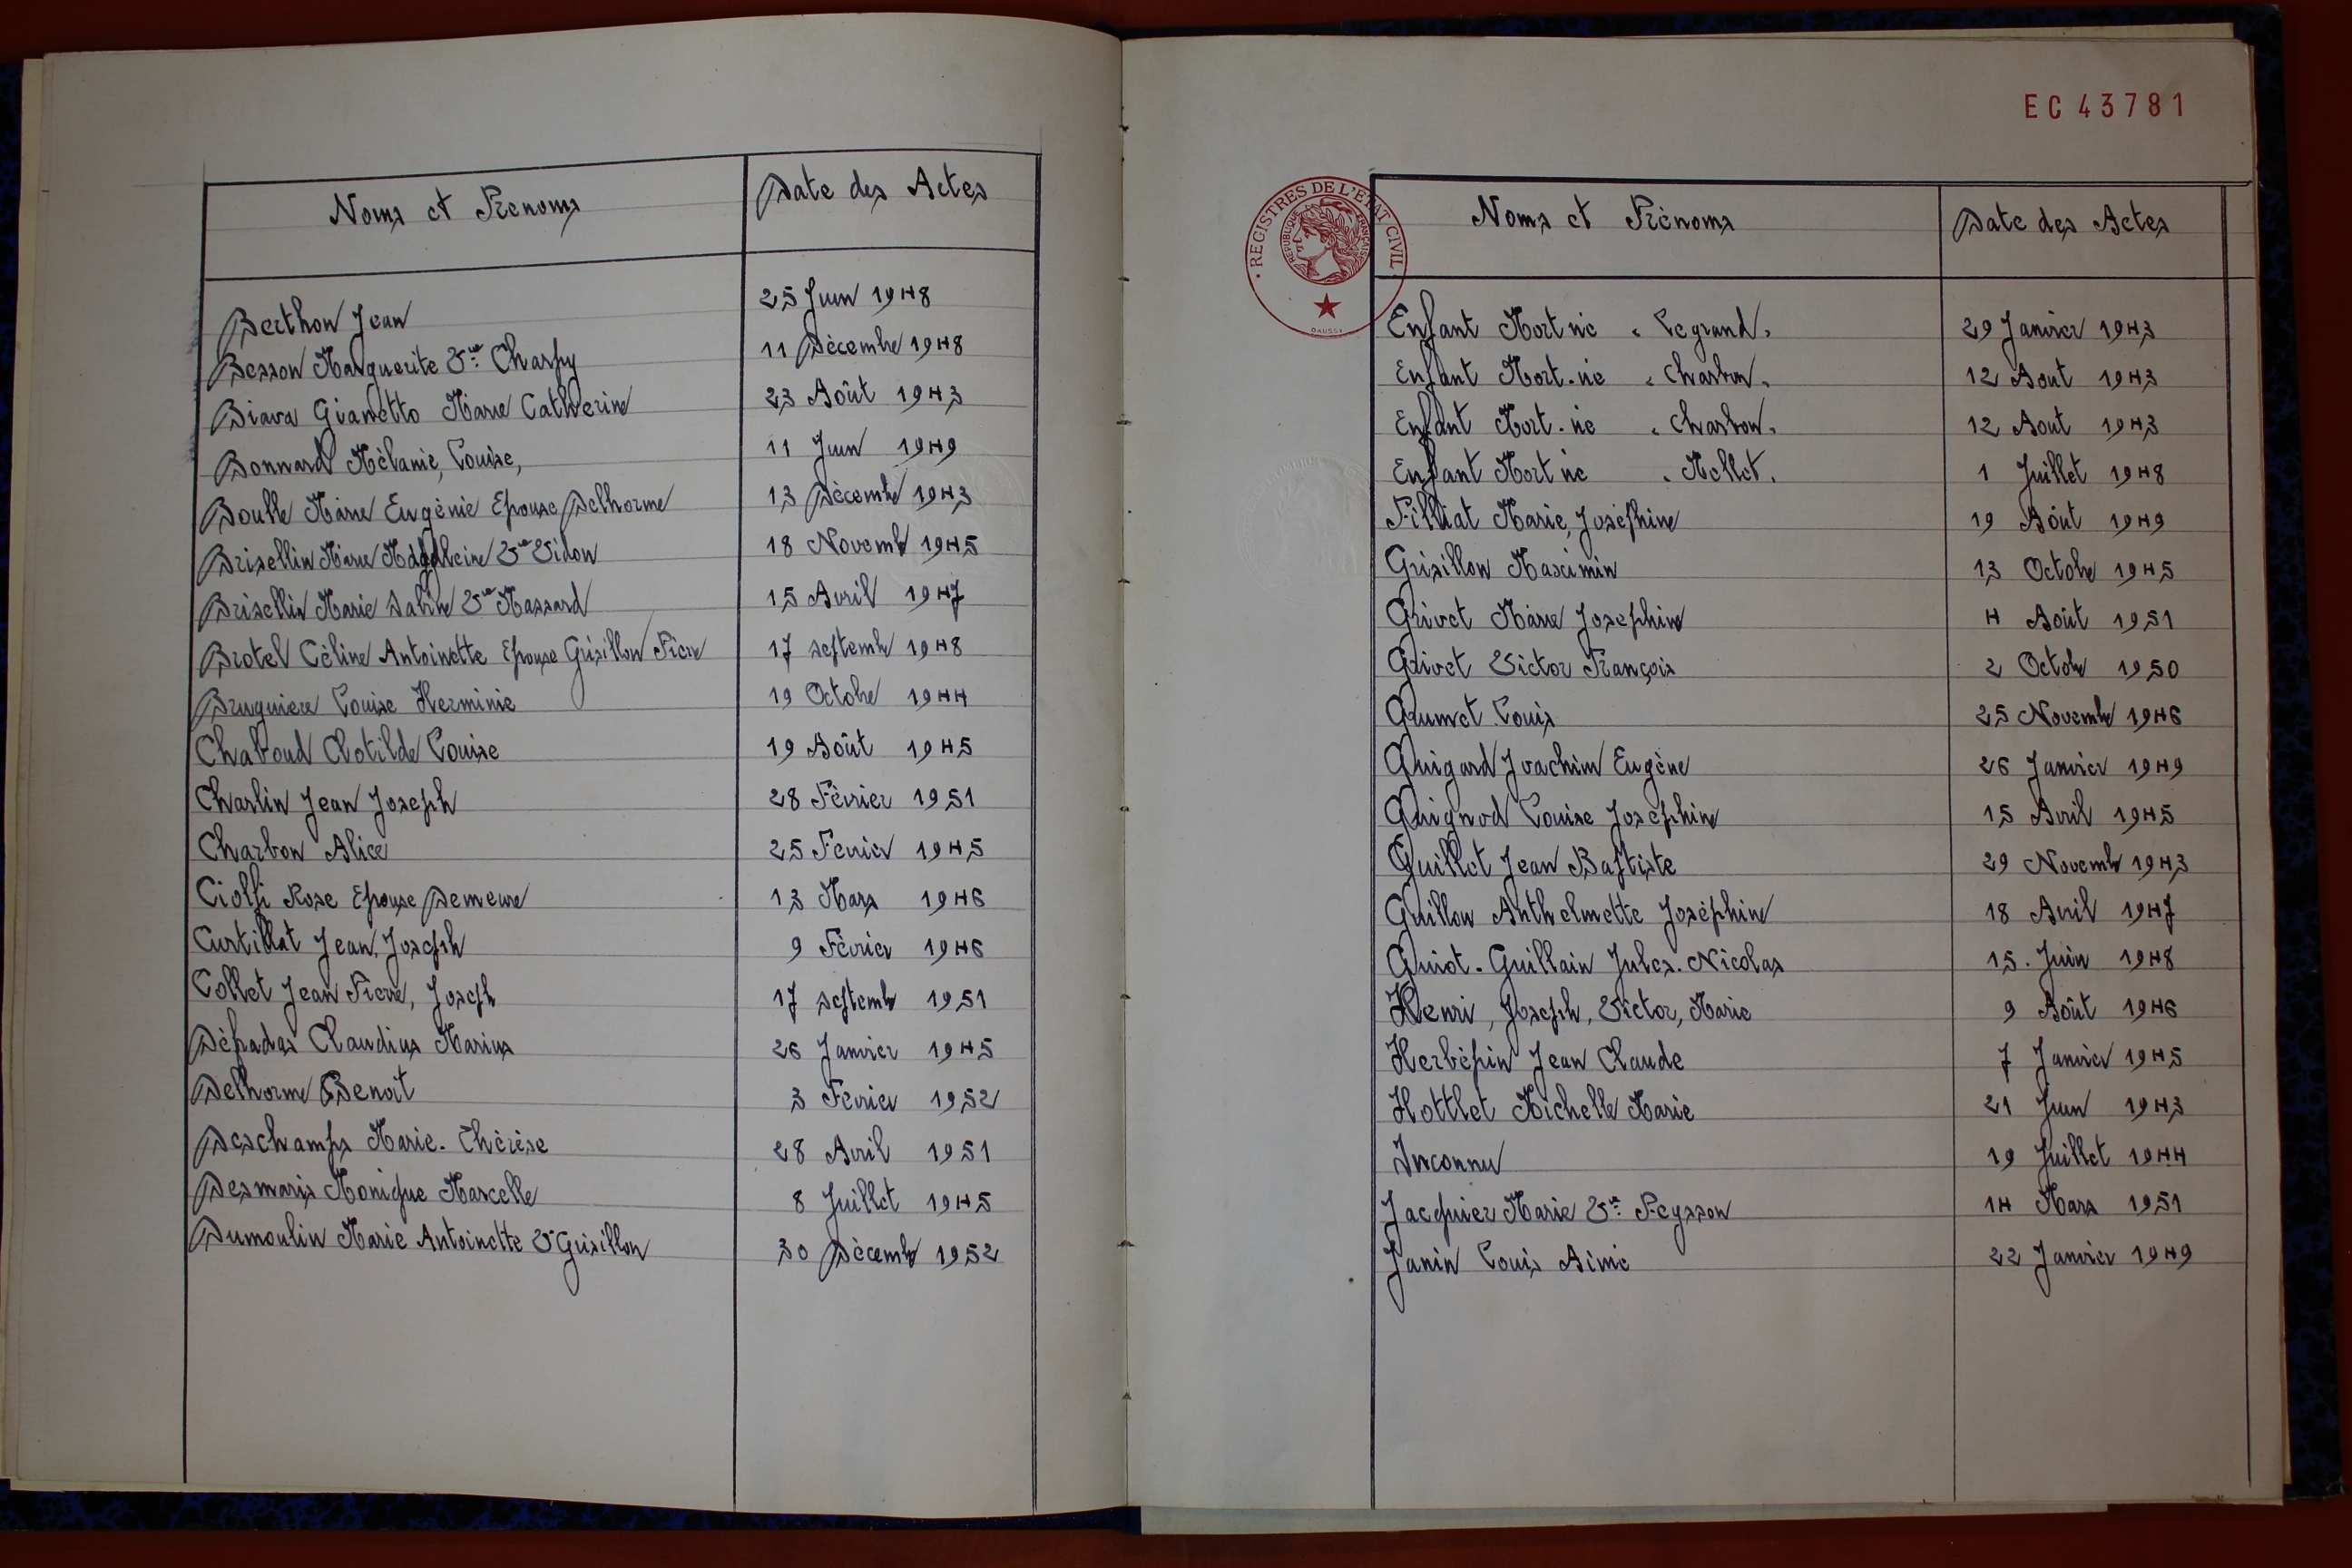 Noms et Prénoms Date des Actes
Berthon Jean 25 Juin 1948
Besson Marguerite Vve Charpy 11 Décembre 1948
Biava Gianetto Marie Catherine 23 Août 1943
Bonnard Mélanie, Louise, 11 Juin 1949
Boulle Marie Eugénie Epouse Delhorme 13 Décembre 1943
Brisellin Marie Magdeleine Vve Vidon 18 Novembre 1945
Brisellin Marie Sabine Vve Massard 15 Avril 1947
Brotel Céline Antoinette Epouse Grisillon Pierre 17 septembre 1948
Bruguiere Louise Herminie 19 Octobre 1944
Chaboud Clotilde Louise 19 Août 1945
Charlin Jean Joseph 28 Février 1951
Charbon Alice 25 Fevrier 1945
Ciolfi Rose Epouse Demeure 13 Mars 1946
Curtillat Jean, Joseph 9 Février 1946
Collet Jean Pierre, Joseph 17 septembre 1951
Dépadas Claudius Marius 26 Janvier 1945
Delhorme Benoit 3 Février 1952
Deschamps Marie-Thérèse 28 Avril 1951
Desmaris Monique Marcelle 8 Juillet 1945
Dumoulin Marie Antoinette Vve Grisillon 30 Décembre 1952
EC 43781
REGISTRES DE L'ETAT CIVIL
REPUBLIQUE FRANÇAISE
DAUSSY
Noms et Prénoms Date des Actes
Enfant Mort né "Legrand" 29 Janvier 1943
Enfant Mort-né "Charbon" 12 Aout 1943
Enfant Mort-né "Charbon" 12 Aout 1943
Enfant Mort né "Mellet" 1 Juillet 1948
Filliat Marie, Joséphine 19 Août 1949
Grisillon Maximin 13 Octobre 1945
Grivet Marie Josephine 4 Août 1951
Grivet Victor François 2 Octobre 1950
Grumet Louis 25 Novembre 1946
Guigard Joachim Eugène 26 Janvier 1949
Guignod Louise Josephine 15 Avril 1945
Guillet Jean Baptiste 29 Novembre 1943
Guillon Anthelmette Joséphine 18 Avril 1947
Guiot-Guillain Jules-Nicolas 15. Juin 1948
Henri, Joseph, Victor, Marie 9 Août 1946
Herbépin Jean Claude 7 Janvier 1945
Hottlet Michelle Marie 21 Juin 1943
Inconnu 19 Juillet 1944
Jacquier Marie Vve Peysson 14 Mars 1951
Janin Louis Aimé 22 Janvier 1949